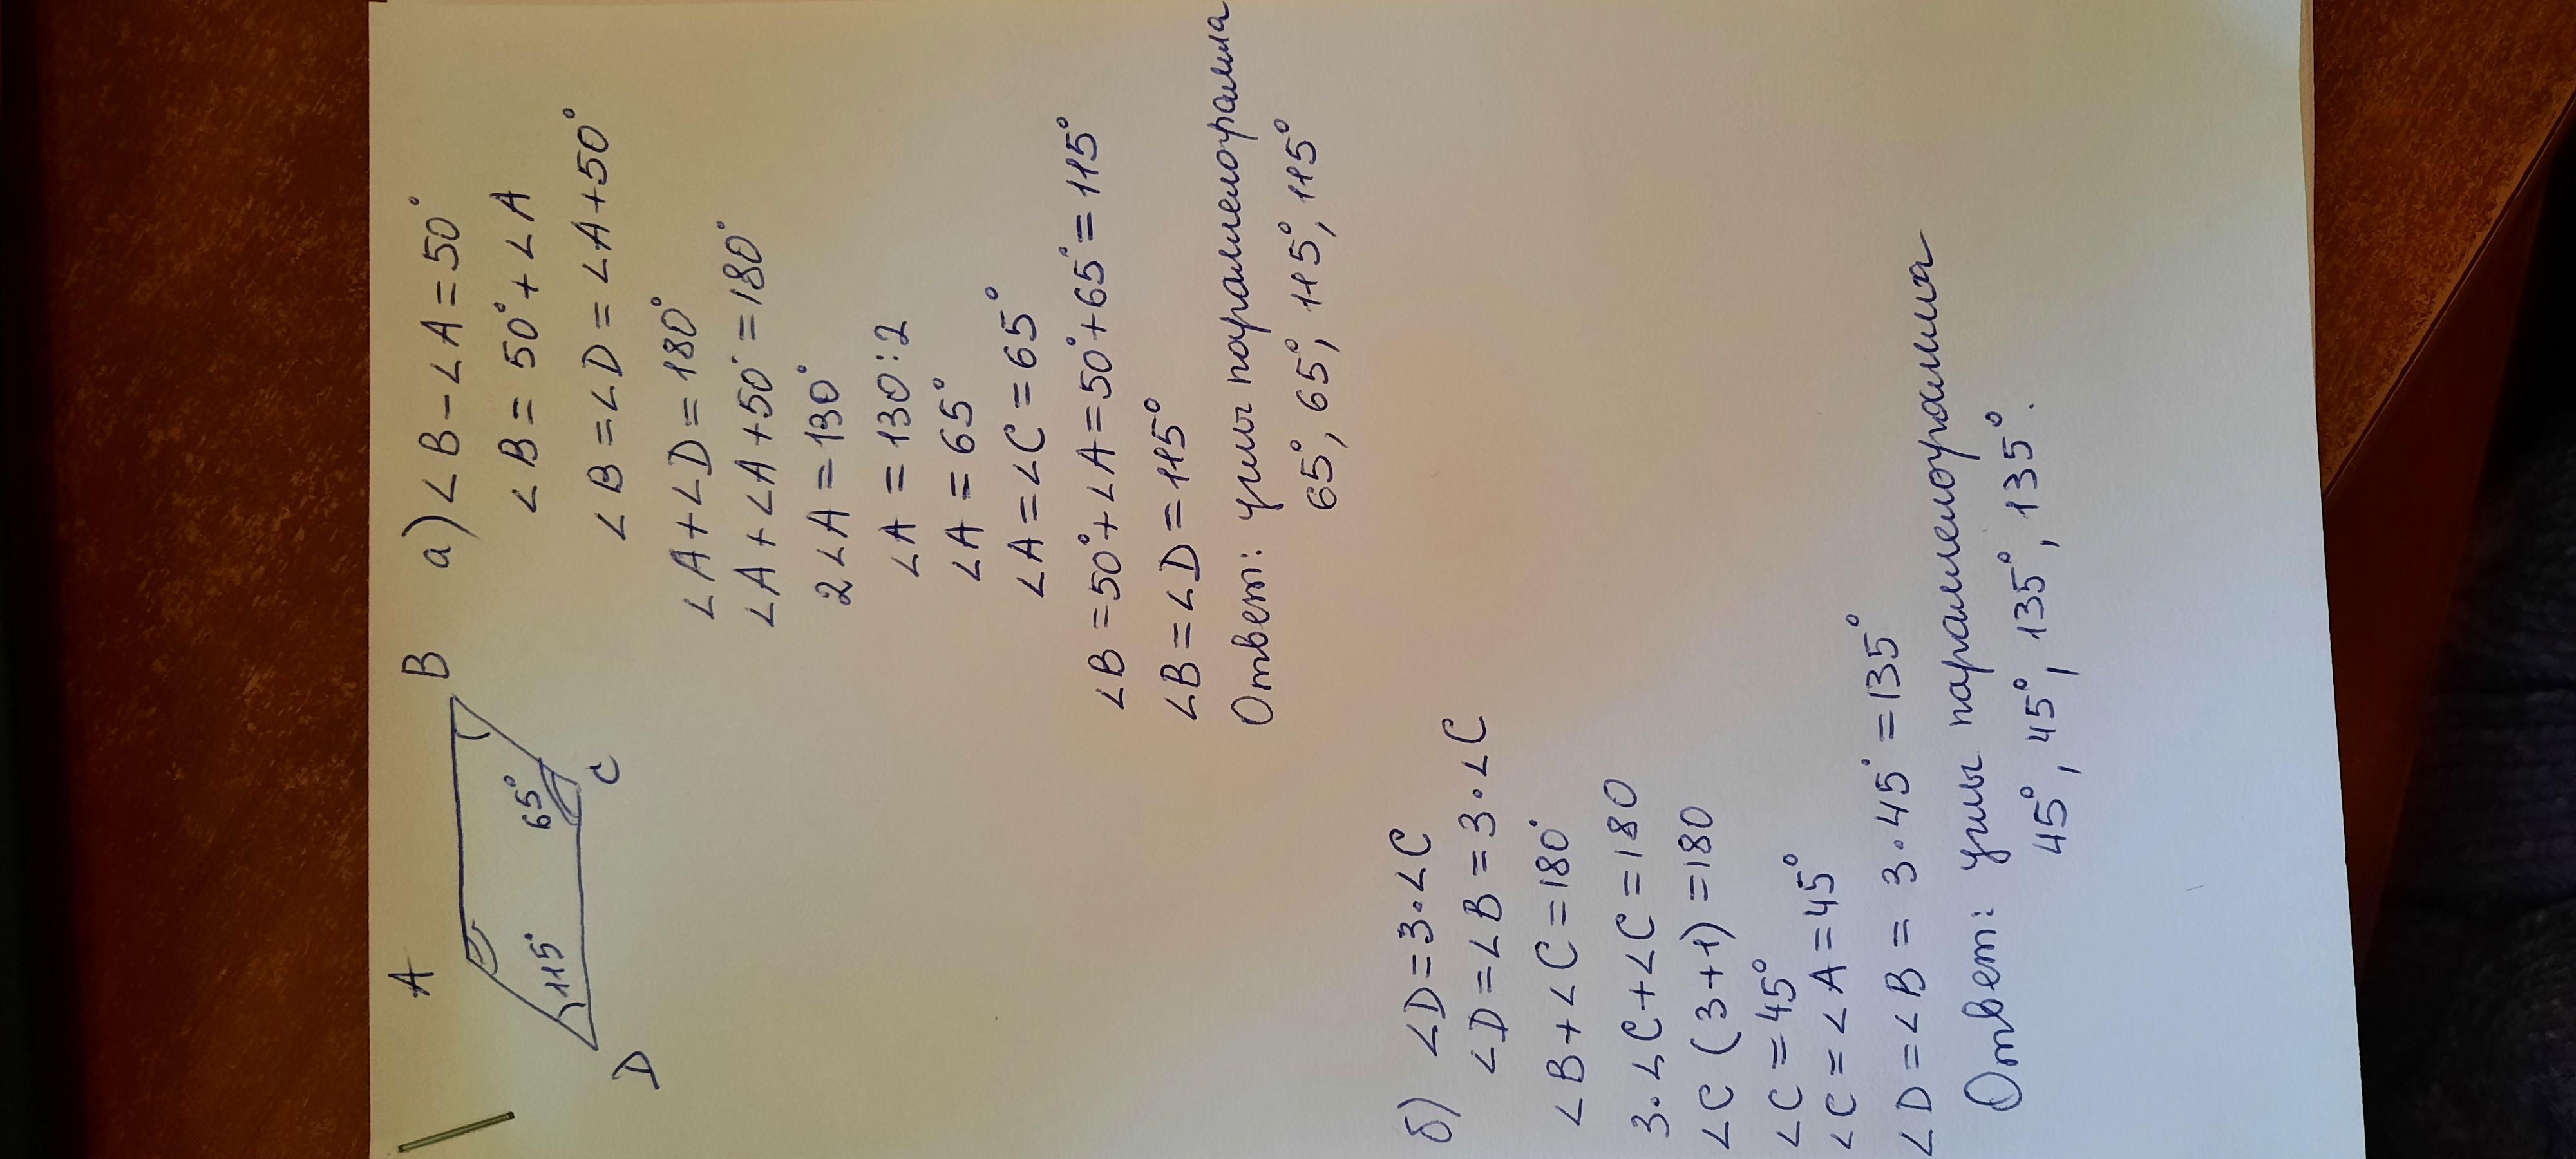 A
B
D
C
115°
65°
а) ∠B - ∠A = 50°
∠B = 50° + ∠A
∠B = ∠D = ∠A + 50°
∠A + ∠D = 180°
∠A + ∠A + 50° = 180°
2∠A = 130°
∠A = 130 : 2
∠A = 65°
∠A = ∠C = 65°
∠B = 50° + ∠A = 50° + 65° = 115°
∠B = ∠D = 115°
Ответ: углы параллелограмма
65°, 65°, 115°, 115°
б) ∠D = 3·∠C
∠D = ∠B = 3·∠C
∠B + ∠C = 180°
3·∠C + ∠C = 180
∠C (3+1) = 180
∠C = 45°
∠C = ∠A = 45°
∠D = ∠B = 3·45° = 135°
Ответ: углы параллелограмма
45°, 45°, 135°, 135°.